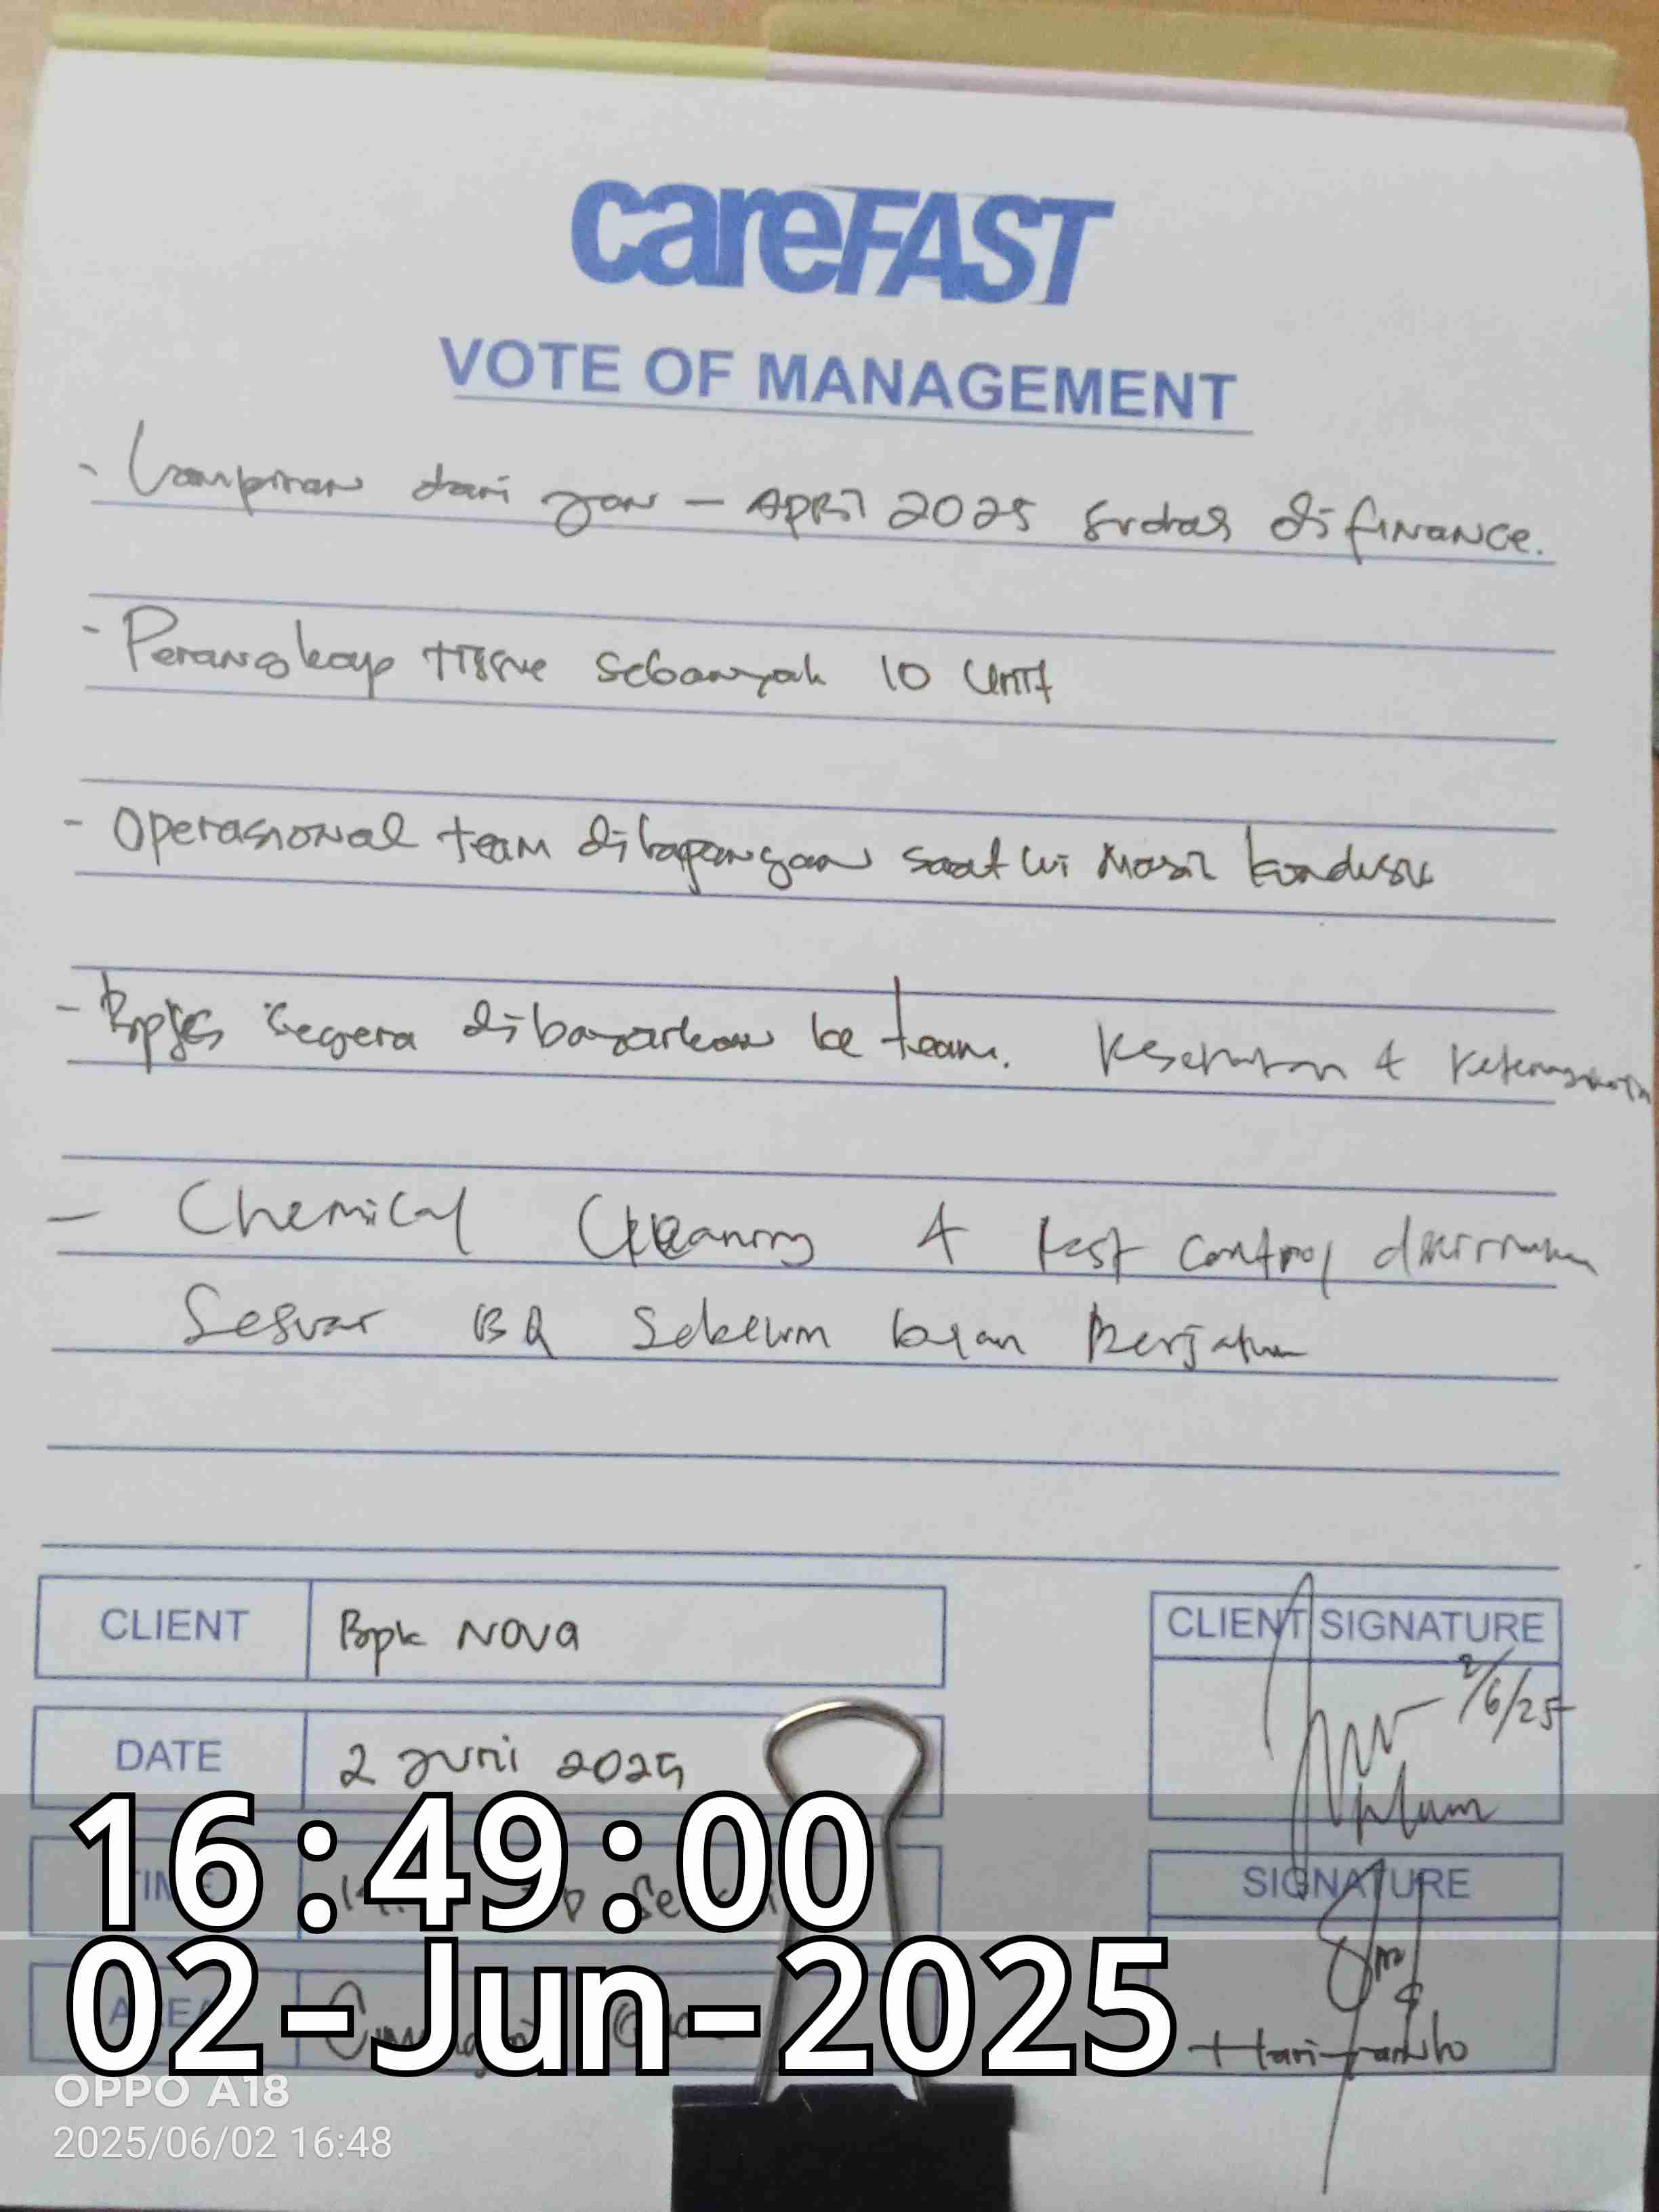 careFAST
VOTE OF MANAGEMENT
- Lampiran dari Jan - April 2025 sudah di finance.
- Perangkap tissue sebanyak 10 unit
- Operasional team dilapangan saat ini masih kondusif
- Bpjs segera dibayarkan ke team. Kesehatan & Ketenagakerja
- Chemical Cleaning & Pest control dikirimkan
Sesuai BQ Sebelum bulan Berjalan
CLIENT Bpk Nova
CLIENT SIGNATURE
2/6/25
DATE 2 Juni 2025
16:49:00
TIME
SIGNATURE
02-Jun-2025
AREA
Hariyanto
OPPO A18
2025/06/02 16:48